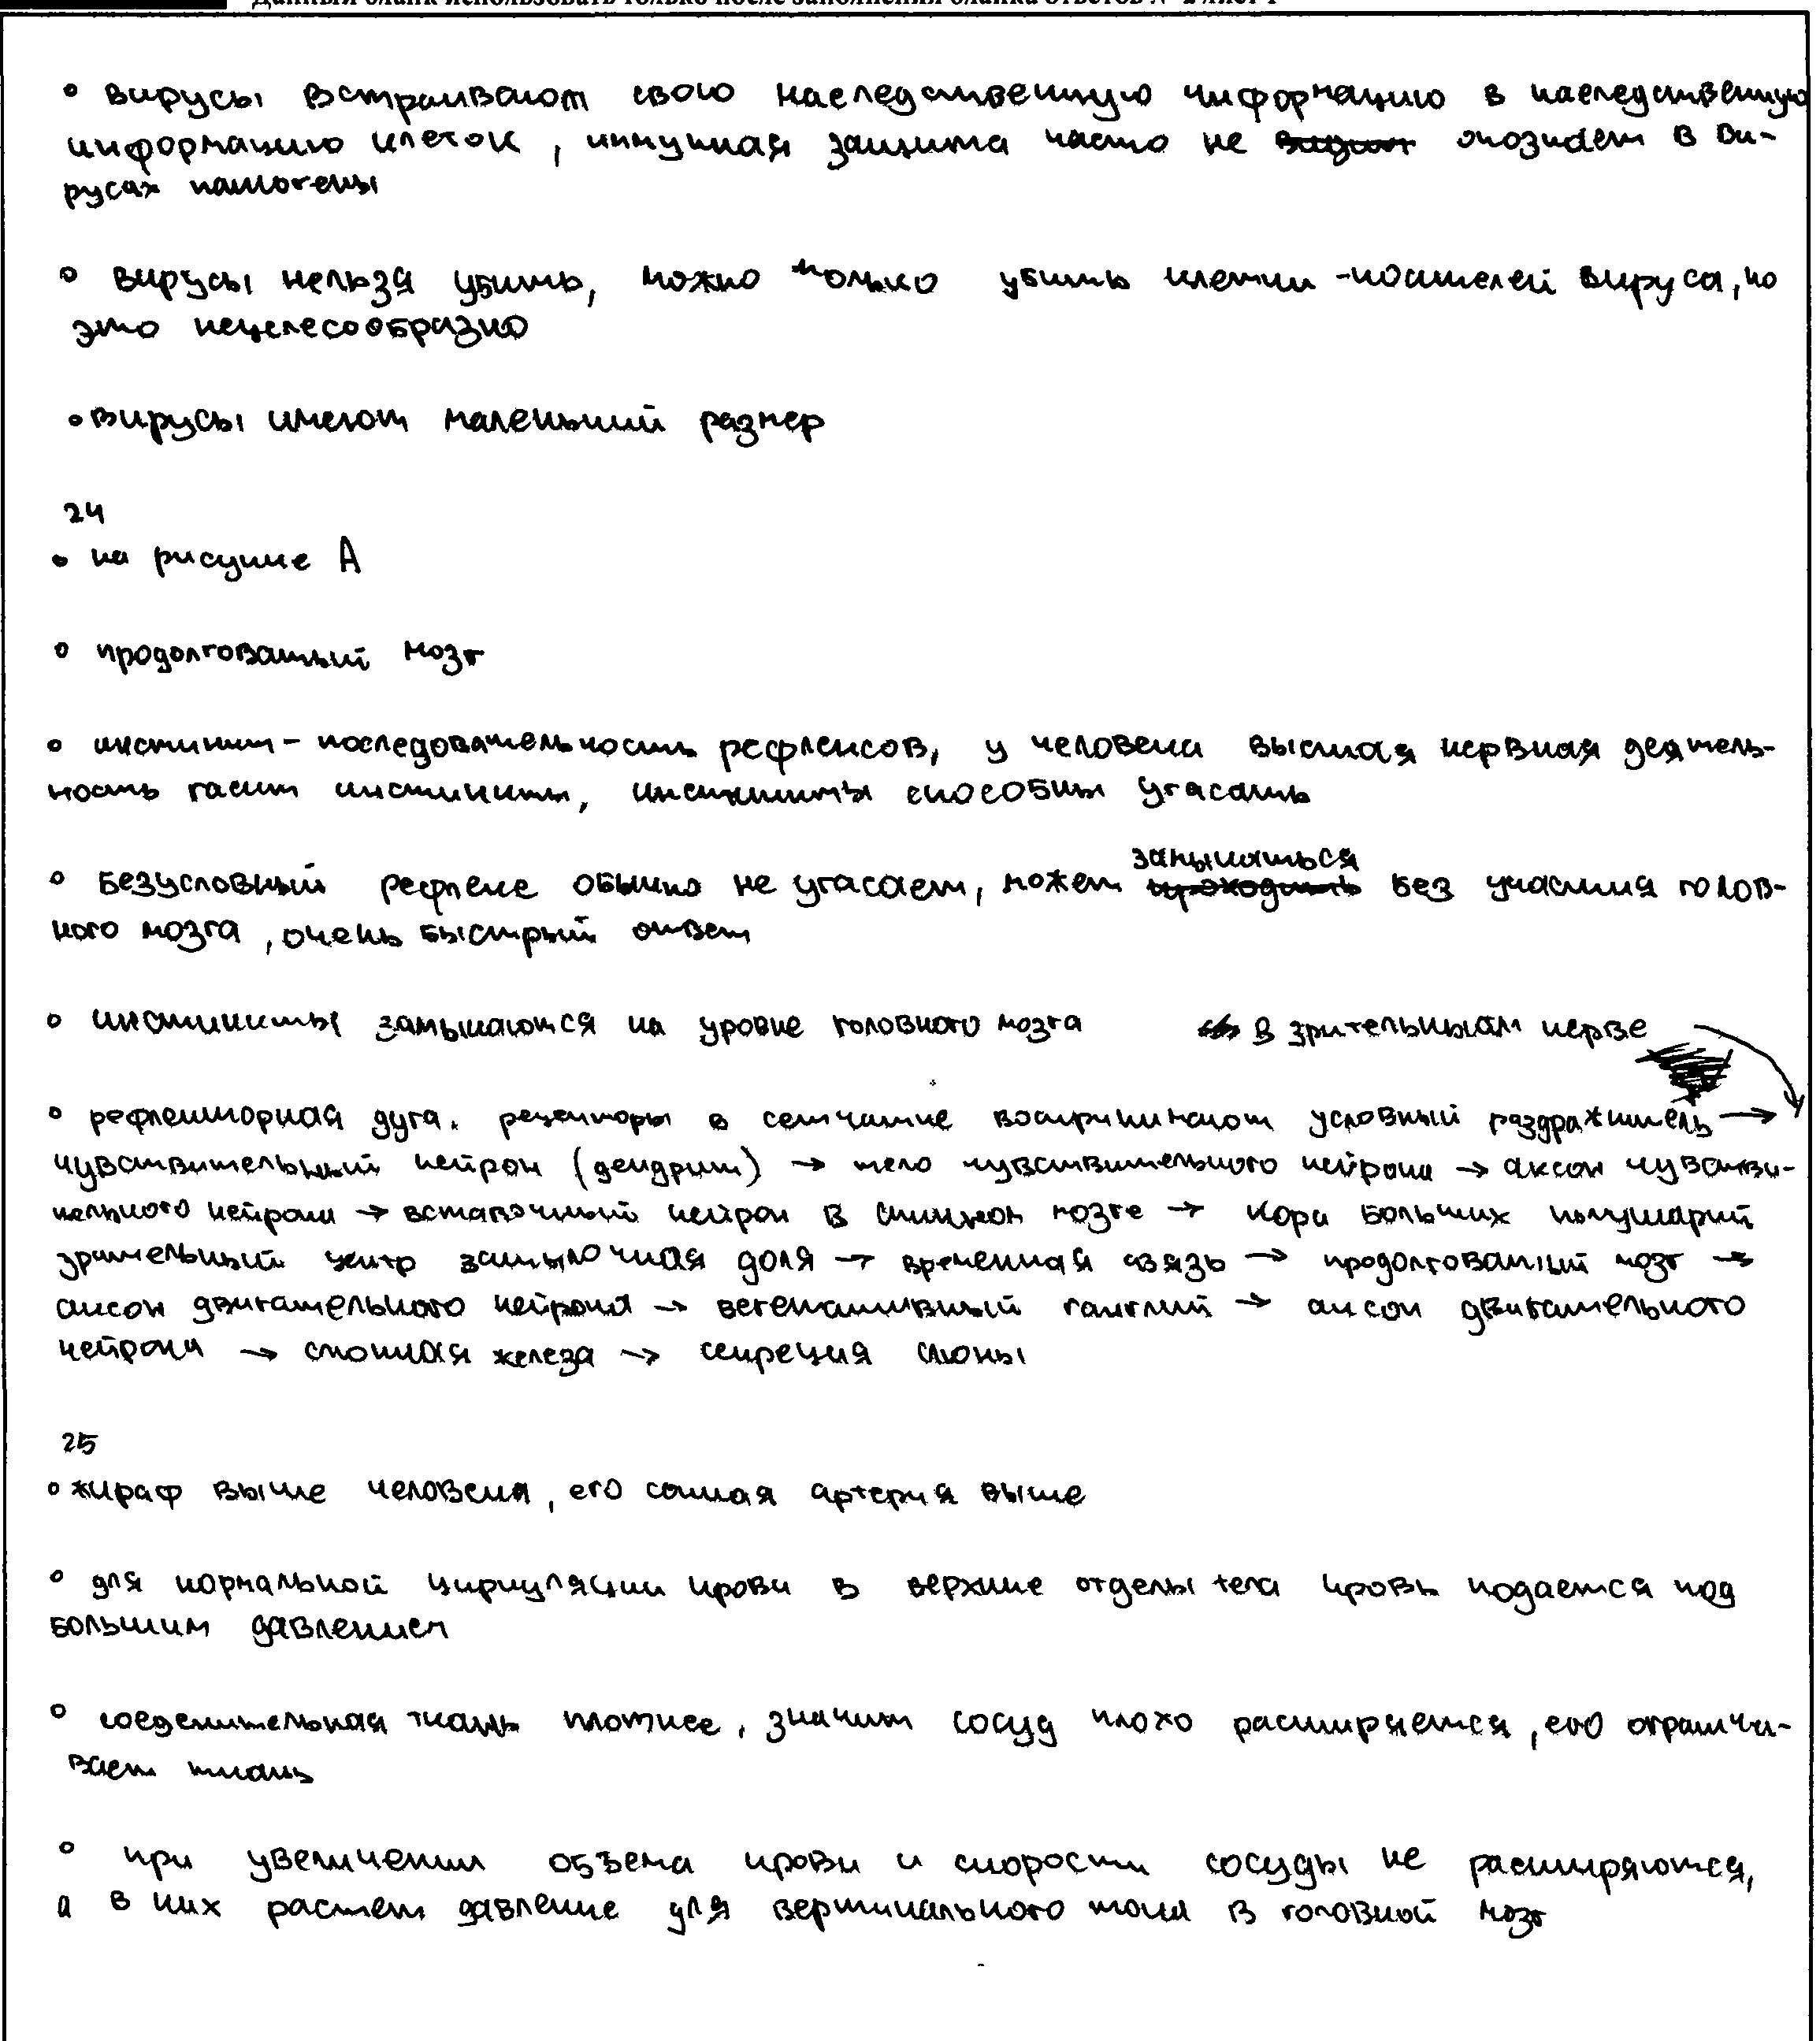 Данный бланк использовать только после заполнения бланка ответов № 2 лист 1
• вирусы встраивают свою наследственную информацию в наследственную
информацию клеток, иммунная защита часто не опознает в ви-
русах патогены
• вирусы нельзя убить, можно только убить клетки-носителей вируса, но
это нецелесообразно
• вирусы имеют маленький размер
24
• на рисунке А
• продолговатый мозг
• инстинкт - последовательность рефлексов, у человека высшая нервная деятель-
ность гасит инстинкты, инстинкты способны угасать
замыкаться
• безусловный рефлекс обычно не угасает, может без участия голов-
ного мозга, очень быстрый ответ
• инстинкты замыкаются на уровне головного мозга в зрительным нерве
• рефлекторная дуга. рецепторы в сетчатке воспринимают условный раздражитель →
чувствительный нейрон (дендрит) → тело чувствительного нейрона → аксон чувстви-
тельного нейрона → вставочный нейрон в спинном мозге → кора больших полушарий
зрительный центр затылочная доля → временная связь → продолговатый мозг →
аксон двигательного нейрона → вегетативный ганглий → аксон двигательного
нейрона → слюнная железа → секреция слюны
25
• жираф выше человека, его сонная артерия выше
• для нормальной циркуляции крови в верхние отделы тела кровь подается под
большим давлением
• соеденительная ткань плотнее, значит сосуд плохо расширяется, его ограничи-
вает ткань
• при увеличении объема крови и скорости сосуды не расширяются,
а в них растет давление для вертикального тока в головной мозг